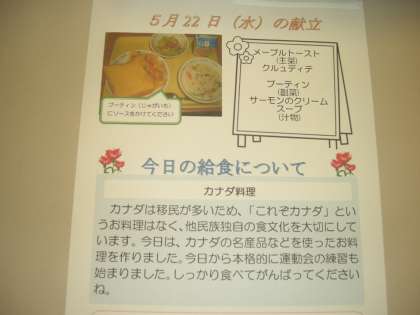 5月22日（水）の献立
メープルトースト
(主菜)
クルュディテ
プーティン
(副菜)
サーモンのクリーム
スープ
(汁物)
プーティン（じゃがいも）
にソースをかけてください
今日の給食について
カナダ料理
カナダは移民が多いため、「これぞカナダ」とい
うお料理はなく、他民族独自の食文化を大切にして
います。今日は、カナダの名産品などを使ったお料
理を作りました。今日から本格的に運動会の練習も
始まりました。しっかり食べてがんばってください
ね。